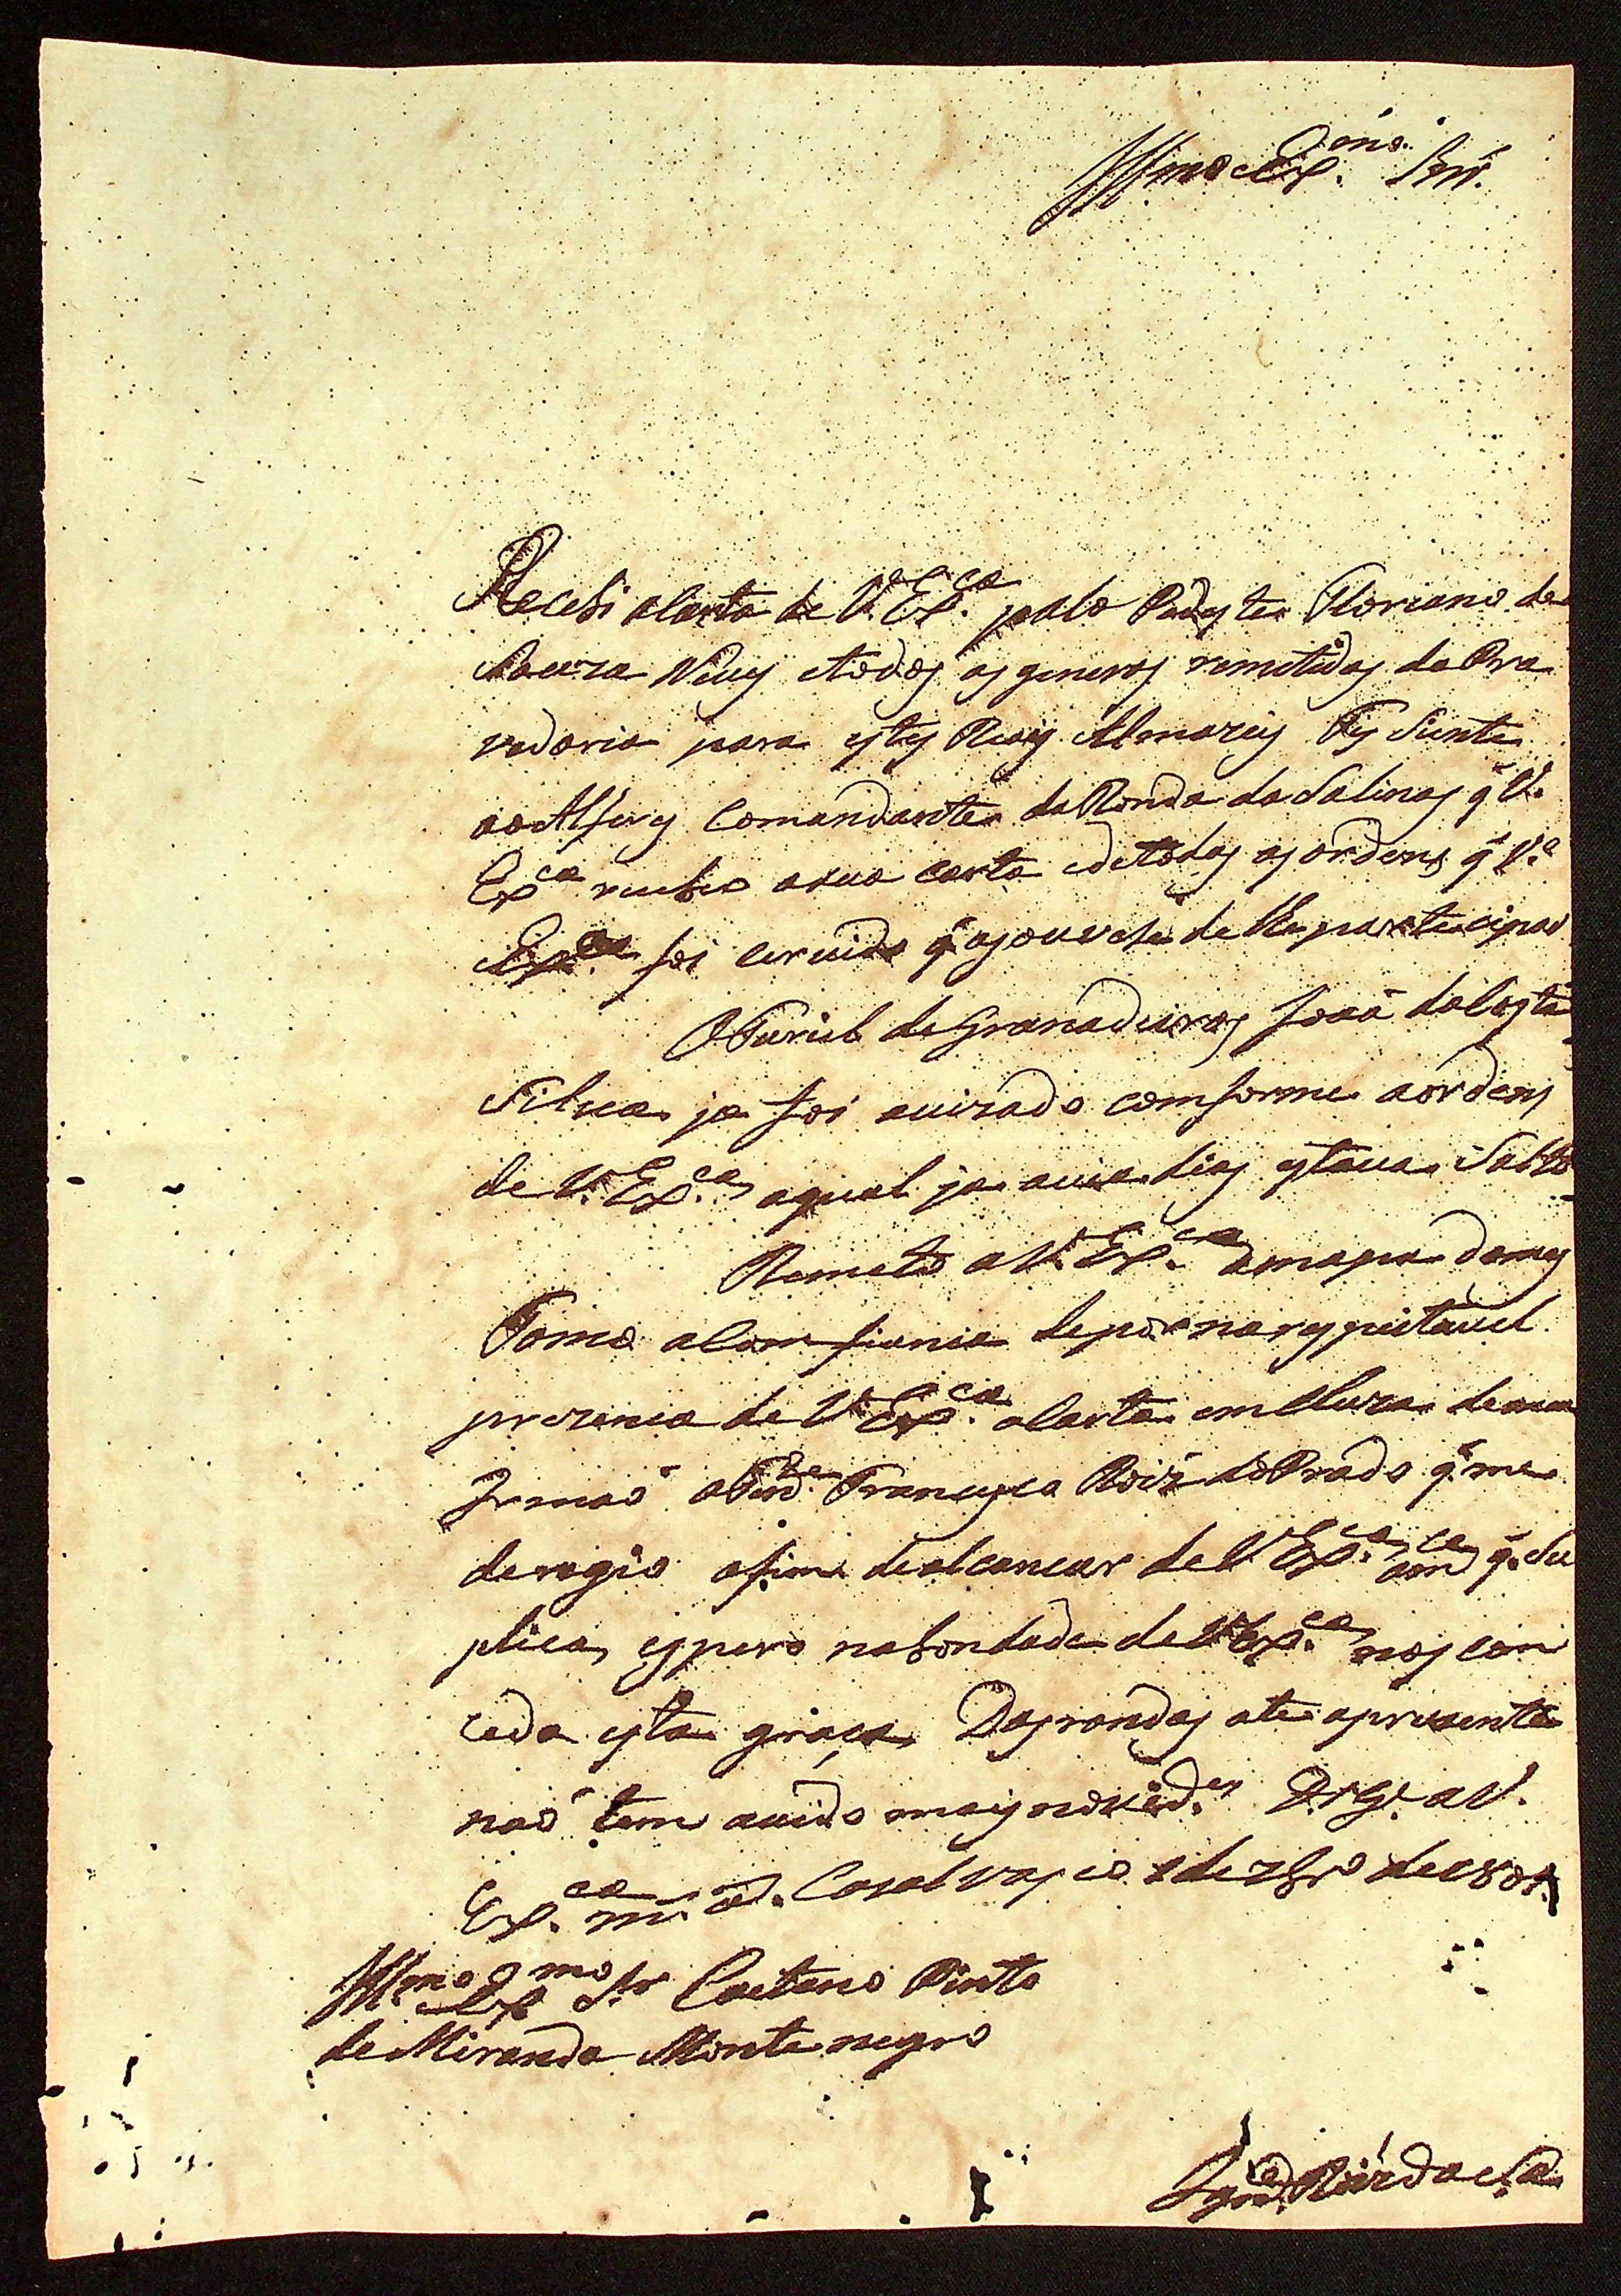 Illmo e Ex.mo Snr.
Recebi aCarta de V. Ex.ca pelo Pedeste Floriano de
Souza Neves etodos os generos remetidos da Pro
vedoria para estes Reais Almazeis Fis siente
ao Alferes Comandante da Ronda da Salinas q̃ V.
Ex.ca recebeo asua carta edetodas as ordens q̃ V.a
Ex.ca foi cervido q̃ asouvese de lhe partecipar
OFuriel de Granadeiros Joaõ da Costa
Silva ja foi avizado comforme aordens
de V. Ex.ca aqual ja avia dias estava Solto
Remeto a V. Ex.ca omapa domes
Tomo aComfiancia depor narespeitavel
prezencia de V. Ex.ca aCarta emcluza demeu
Irmaõ oTen.de Francisco Roiz do Prado q̃ me
derogio afim dealcancar de V Ex.ca q̃ Su
plica, espero nabondade de V Ex.ca nos con
ceda esta graça, Dasrondas ate apresente
naõ tem avido mais novid.es D.s G.e a V.
Ex.ca m.s a. Casalvasco de 7br.o de 1801
Ill.mo e Ex.mo Sr Caetano Pinto
de Miranda Monte negro